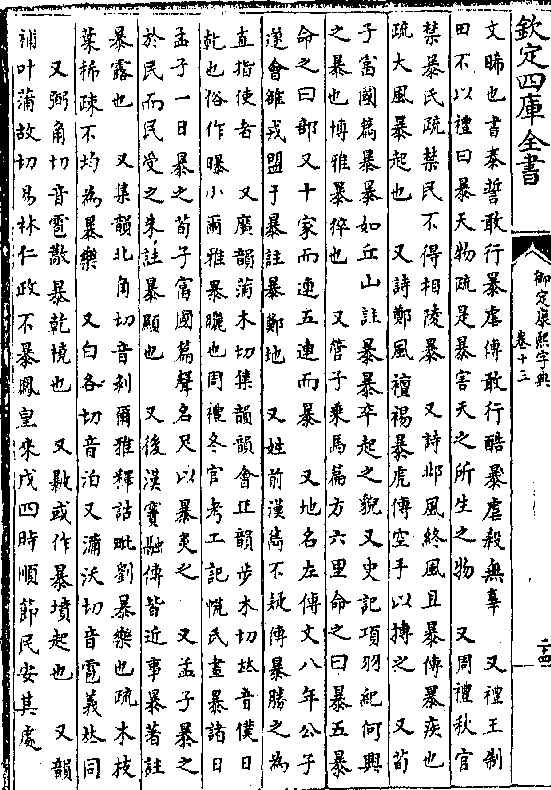 欽定四庫全書
御定康熙字典
卷十三
二十四
文晞也書泰誓敢行暴虐傳敢行酷暴虐殺無辜　又禮王制
田不以禮曰暴天物疏是暴害天之所生之物　又周禮秋官
禁暴氏疏禁民不得相陵暴　又詩邶風終風且暴傳暴疾也
疏大風暴起也　又詩鄭風襢裼暴虎傳空手以搏之　又荀
子富國篇暴暴如丘山註暴暴卒起之貌又史記項羽紀何興
之暴也博雅暴猝也　又管子乘馬篇方六里命之曰暴五暴
命之曰部又十家而連五連而暴　又地名左傳文八年公子
遂會雒戎盟于暴註暴鄭地　又姓前漢雋不疑傳暴勝之為
直指使者　又廣韻蒲木切集韻韻會正韻步木切𠀤音僕日
乾也俗作曝小爾雅暴曬也周禮冬官考工記㡛氏晝暴諸日
孟子一日暴之荀子富國篇聲名足以暴炙之　又孟子暴之
於民而民受之朱註暴顯也　又後漢竇融傳皆近事暴著註
暴露也　又集韻北角切音剝爾雅釋詁毗劉暴樂也疏木枝
葉稀疎不均為暴樂　又白各切音泊又瀰沃切音雹義𠀤同
又弼角切音雹㪚暴乾橈也　又㪍或作暴墳起也　又韻
補叶蒲故切易林仁政不暴鳳皇來戌四時順節民安其處